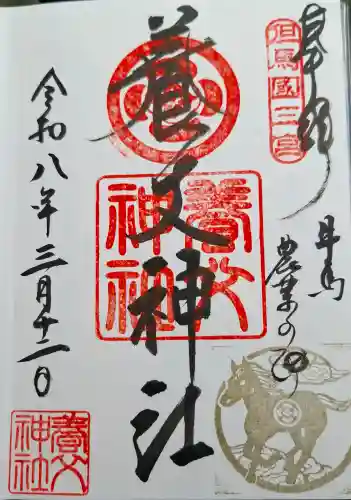 奉拝
但馬國三宮
但馬
農業の神
養父神社
養父神社
令和八年三月十二日
養父神社